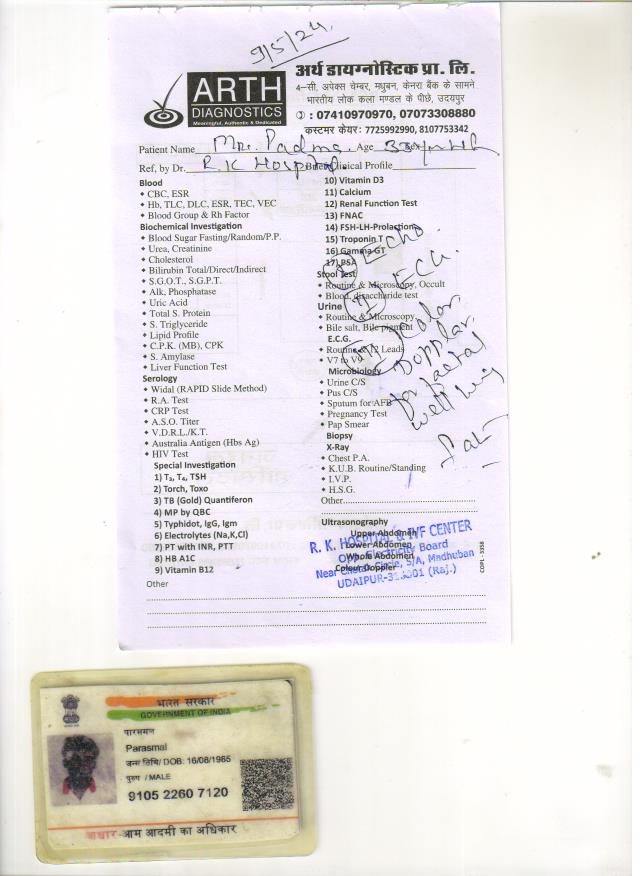 9/5/24.
ARTH
DIAGNOSTICS
Meaningful, Authentic & Dedicated
अर्थ डायग्नोस्टिक प्रा. लि.
4-सी, अपेक्स चेम्बर, मधुबन, केनरा बैंक के सामने
भारतीय लोक कला मण्डल के पीछे, उदयपुर
: 07410970970, 07073308880
कस्टमर केयर: 7725992990, 8107753342
Patient Name Padma Age
Ref, by Dr. R.K Hospital Clinical Profile
Blood
CBC, ESR
Hb, TLC, DLC, ESR, TEC, VEC
Blood Group & Rh Factor
Biochemical Investigation
Blood Sugar Fasting/Random/P.P.
Urea, Creatinine
Cholesterol
Bilirubin Total/Direct/Indirect
S.G.O.T., S.G.P.T.
Alk, Phosphatase
Uric Acid
Total S. Protein
S. Triglyceride
Lipid Profile
C.P.K. (MB), CPK
S. Amylase
Liver Function Test
Serology
Widal (RAPID Slide Method)
R.A. Test
CRP Test
A.S.O. Titer
V.D.R.L./K.T.
Australia Antigen (Hbs Ag)
HIV Test
Special Investigation
1) T₃, T₄, TSH
2) Torch, Toxo
3) TB (Gold) Quantiferon
4) MP by QBC
5) Typhidot, IgG, Igm
6) Electrolytes (Na,K,Cl)
7) PT with INR, PTT
8) HB A1C
9) Vitamin B12
Other
10) Vitamin D3
11) Calcium
12) Renal Function Test
13) FNAC
14) FSH-LH-Prolaction
15) Troponin T
16) Gamma GT
17) PSA
Stool Test
Routine & Microscopy, Occult
Blood, disaccharide test
Urine
Routine & Microscopy
Bile salt, Bile pigment
E.C.G.
Routine 12 Leads
V7 to
Microbiology
Urine C/S
Pus C/S
Sputum for AFB
Pregnancy Test
Pap Smear
Biopsy
X-Ray
Chest P.A.
K.U.B. Routine/Standing
I.V.P.
H.S.G.
Other
Ultrasonography
Upper Abdomen
Lower Abdomen
Whole Abdomen
Colour Doppler
Echo
ECG.
Color
Dopplar
for faetal
well
R. K. HOSPITAL & IVF CENTER
Opp. Electricity Board
Near Circle, 5/A, Madhuban
UDAIPUR-313001 (Raj.)
COPL - 5358
भारत सरकार
GOVERNMENT OF INDIA
पारसमल
Parasmal
जन्म तिथि/ DOB: 16/08/1985
पुरुष / MALE
9105 2260 7120
आधार-आम आदमी का अधिकार